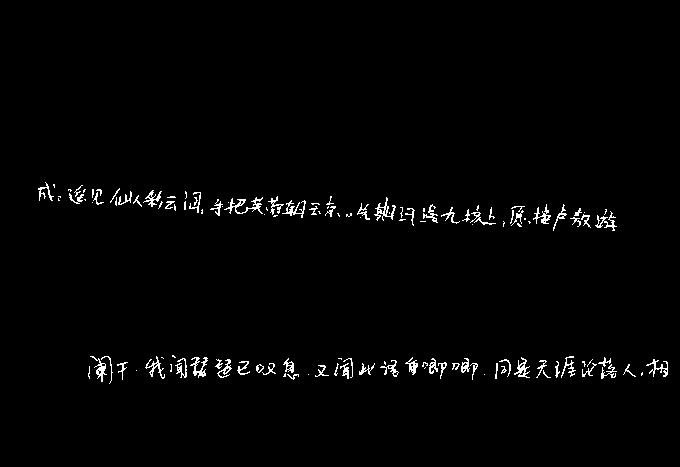 成。遥见仙人彩云间,手把芙蓉朝玉京。先期汗漫九垓上,愿接卢敖游
阑干。我闻琵琶已叹息,又闻此语重唧唧。同是天涯沦落人,相